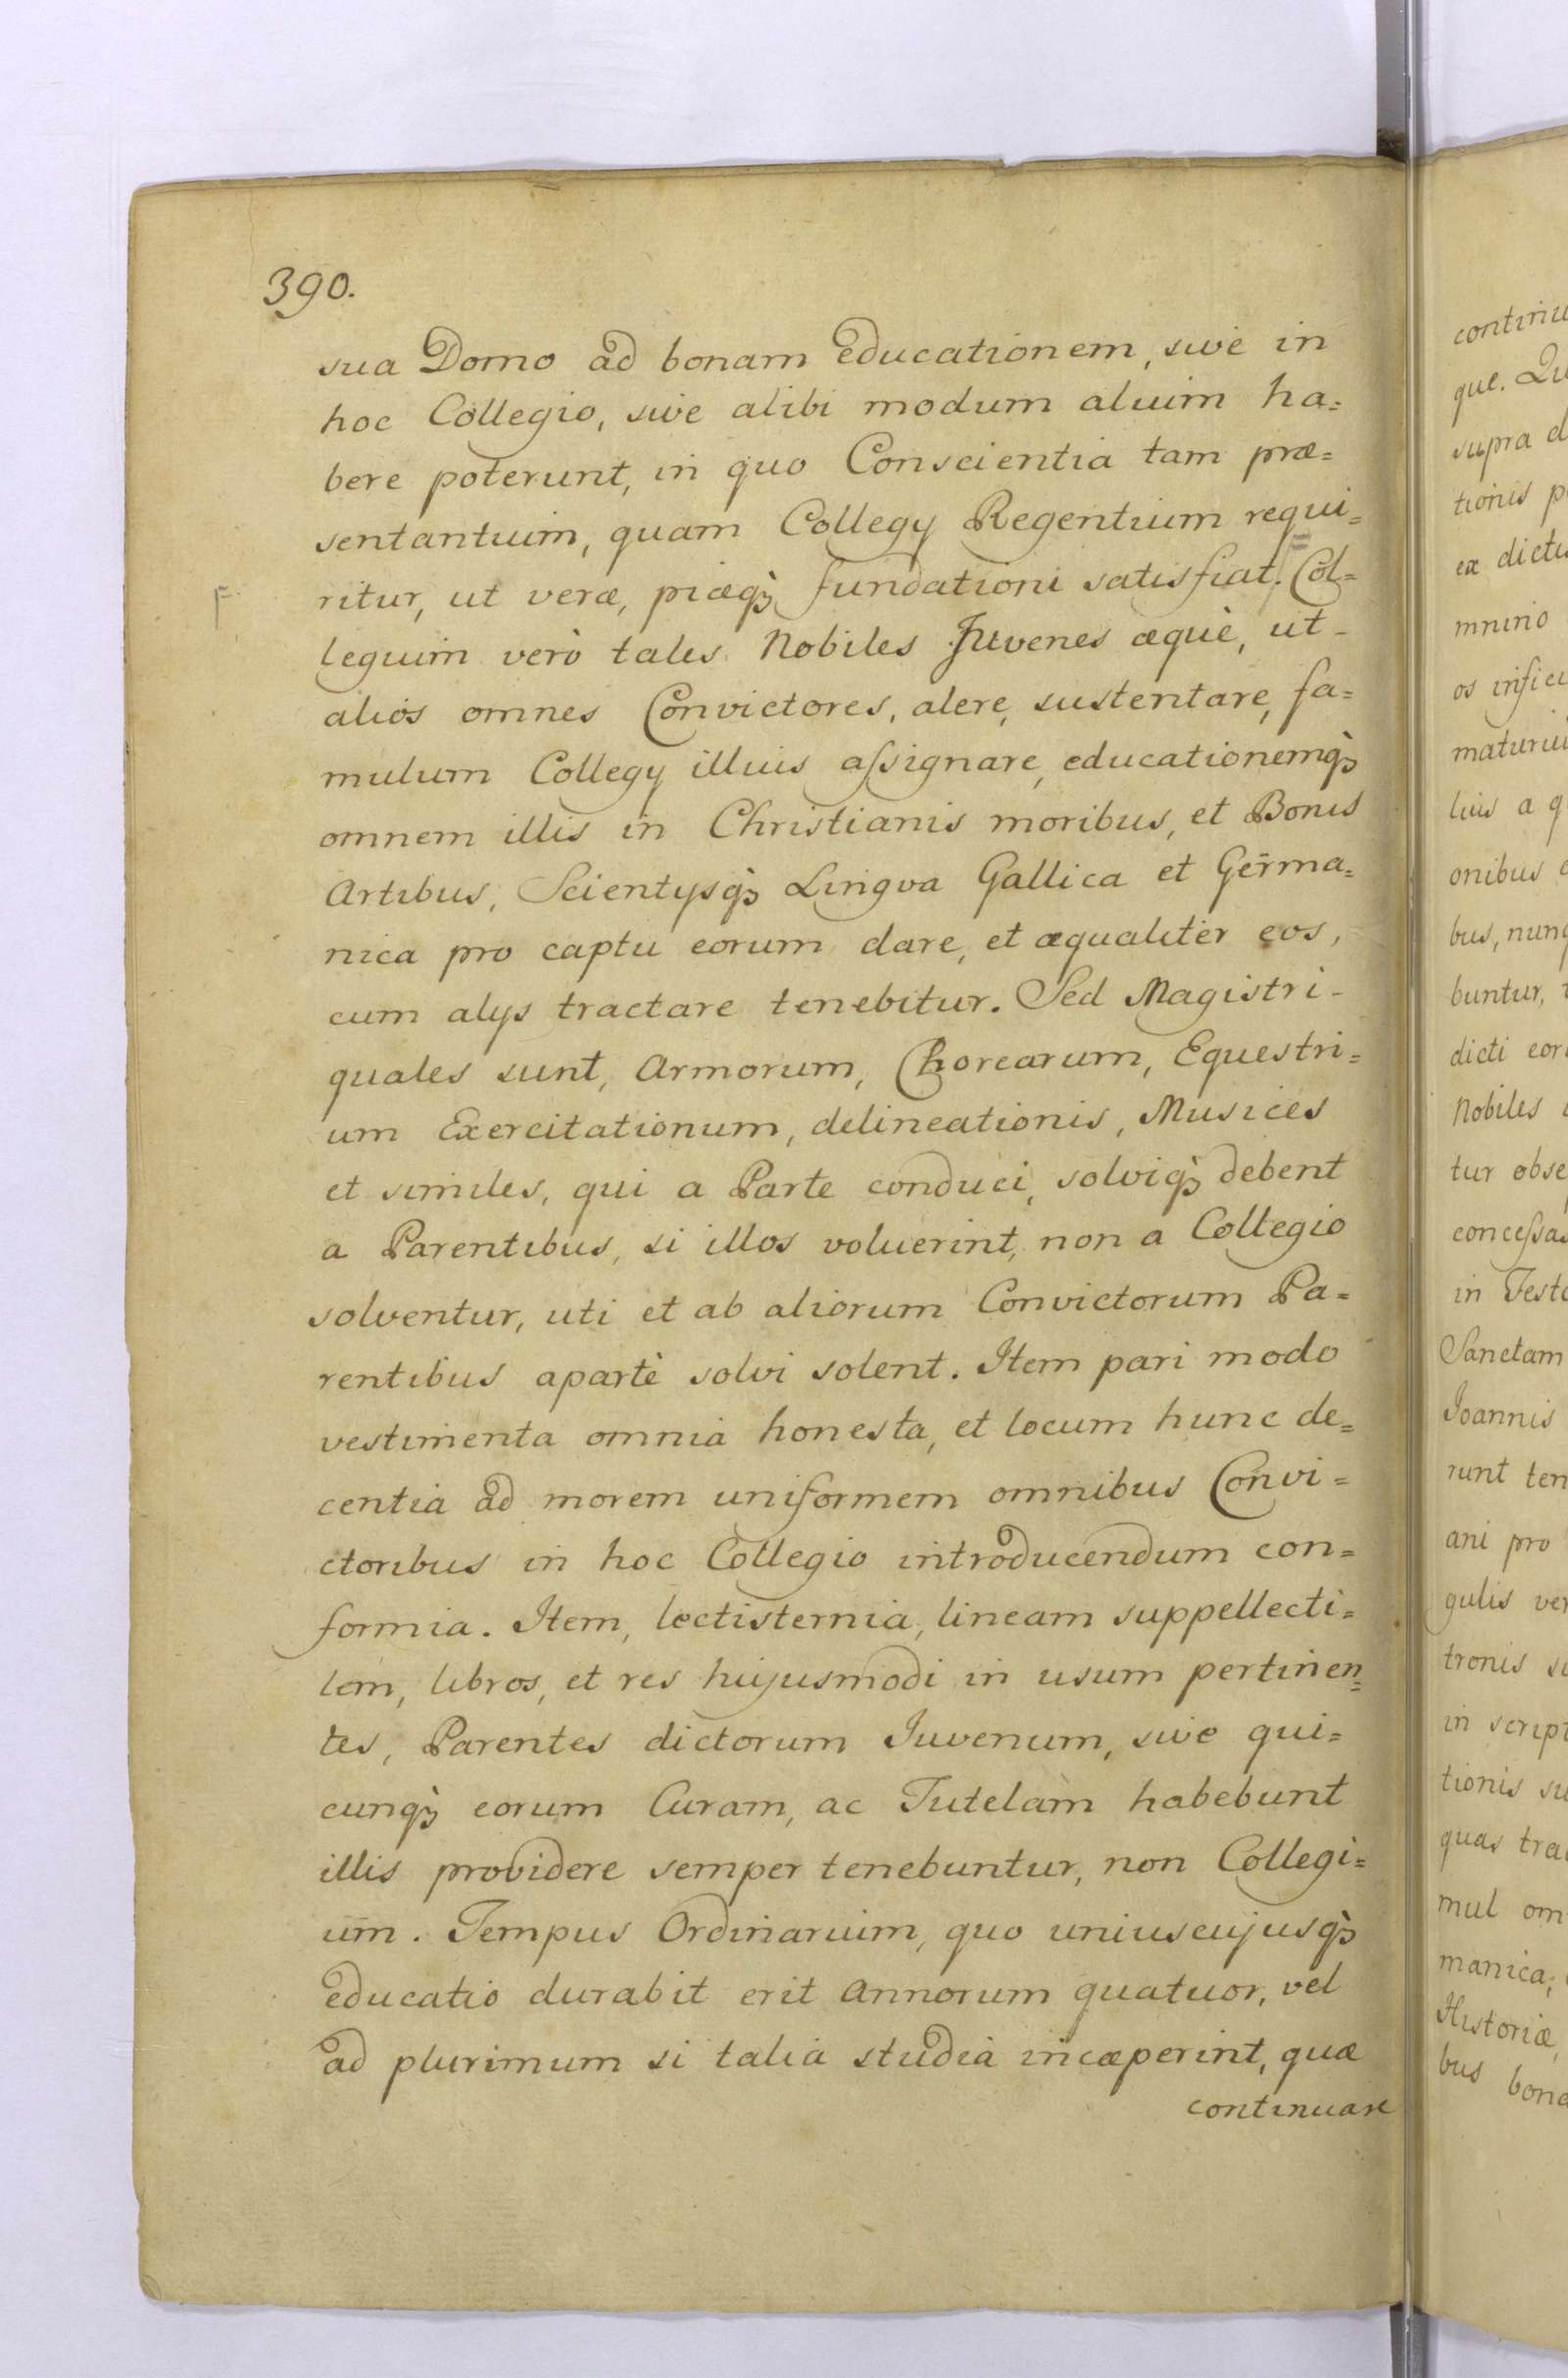 390.
sua Domo ad bonam educationem, sive in
hoc Collegio, sive alibi modum alium ha=
bere poterunt, in quo Conscientia tam præ=
sentantium, quam Collegij Regentium requi=
ritur, ut veræ, piæq; fundationi satisfiat. Col=
F.
legium verò tales Nobiles Juvenes æquè, ut-
aliòs omnes Convictores, alere, sustentare, fa=
mulum Collegij illius aſsignare, educationemq;
omnem illis in Christianis moribus, et Bonis
Artibus, Scientijsq; Lingva Gallica et Germa=
nica pro captu eorum dare, et æqualiter eos,
cum alijs tractare tenebitur. Sed Magistri-
quales sunt, Armorum, Chorearum, Equestri=
um Exercitationum, delineationis, Musices
et similes, qui a Parte conduci, solviq; debent
a Parentibus, si illos voluerint, non a Collegio
solventur, uti et ab aliorum Convictorum Pa=
rentibus apartè solvi solent. Item pari modo
vestimenta omnia honesta, et locum hunc de=
centia ad morem uniformem omnibus Convi=
ctoribus in hoc Collegio introducendum con=
formia. Item, lectisternia, lineam suppellecti=
lem, libros, et res hujusmodi in usum pertinen=
tes, Parentes dictorum Iuvenum, sive qui=
cunq; eorum Curam, ac Tutelam habebunt
illis providere semper tenebuntur, non Collegi=
um. Tempus Ordinarium, quo uniuscujusq;
educatio durabit erit Annorum quatuor, vel
ad plurimum si talia studia incæperint, quæ
continuare
que. Qu
supra
tionis
ex
mnino
os
lius a
onibus
bus,
buntur,
dicti
Nobiles
tur
in
Sanctam
Joannis
runt
ani pro
gulis
tronis
in
tionis
quas
mul
manica;
Historiæ,
bus